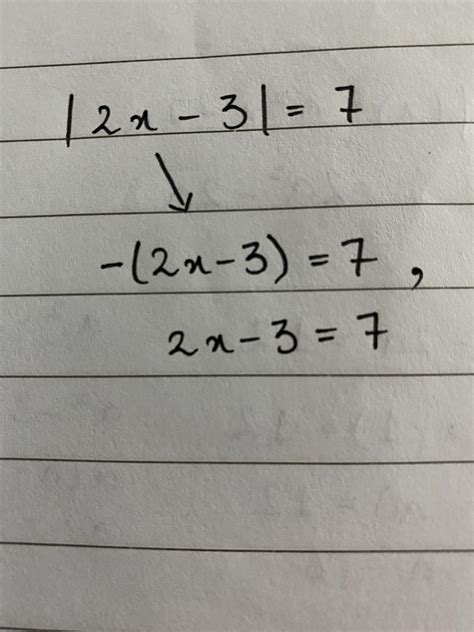 |2x - 3| = 7
-(2x-3) = 7 ,
2x-3 = 7